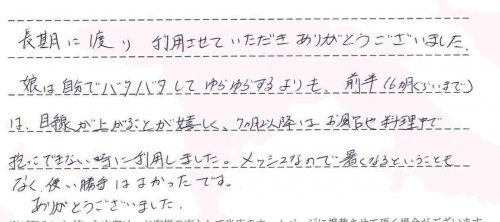 長期に渡り 利用させていただきありがとうございました。
娘は自分でバタバタしてゆらゆらするよりも、前半(6カ月くらいまで)
は、目線が上がることが嬉しく、7カ月以降はお風呂や料理中で
抱っこできない時に利用しました。メッシュなので暑くなるということも
なく、使い勝手はよかったです。
ありがとうございました。